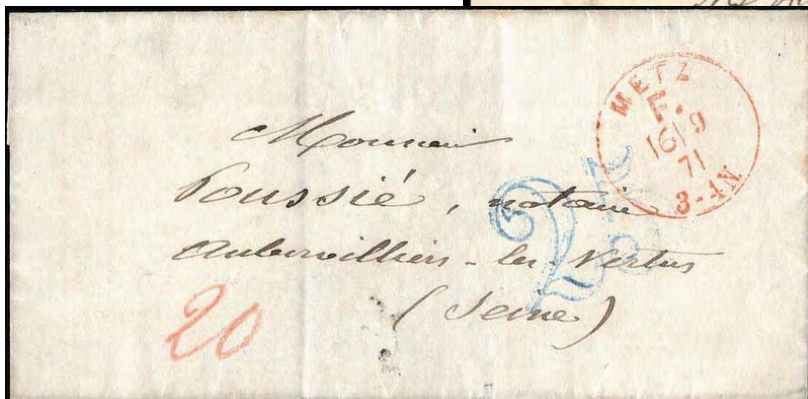 METZ
F.
16 9
71
3-4N.
Monsieur
Poussié, notaire
Aubervilliers-les-Vertus
(Seine)
20